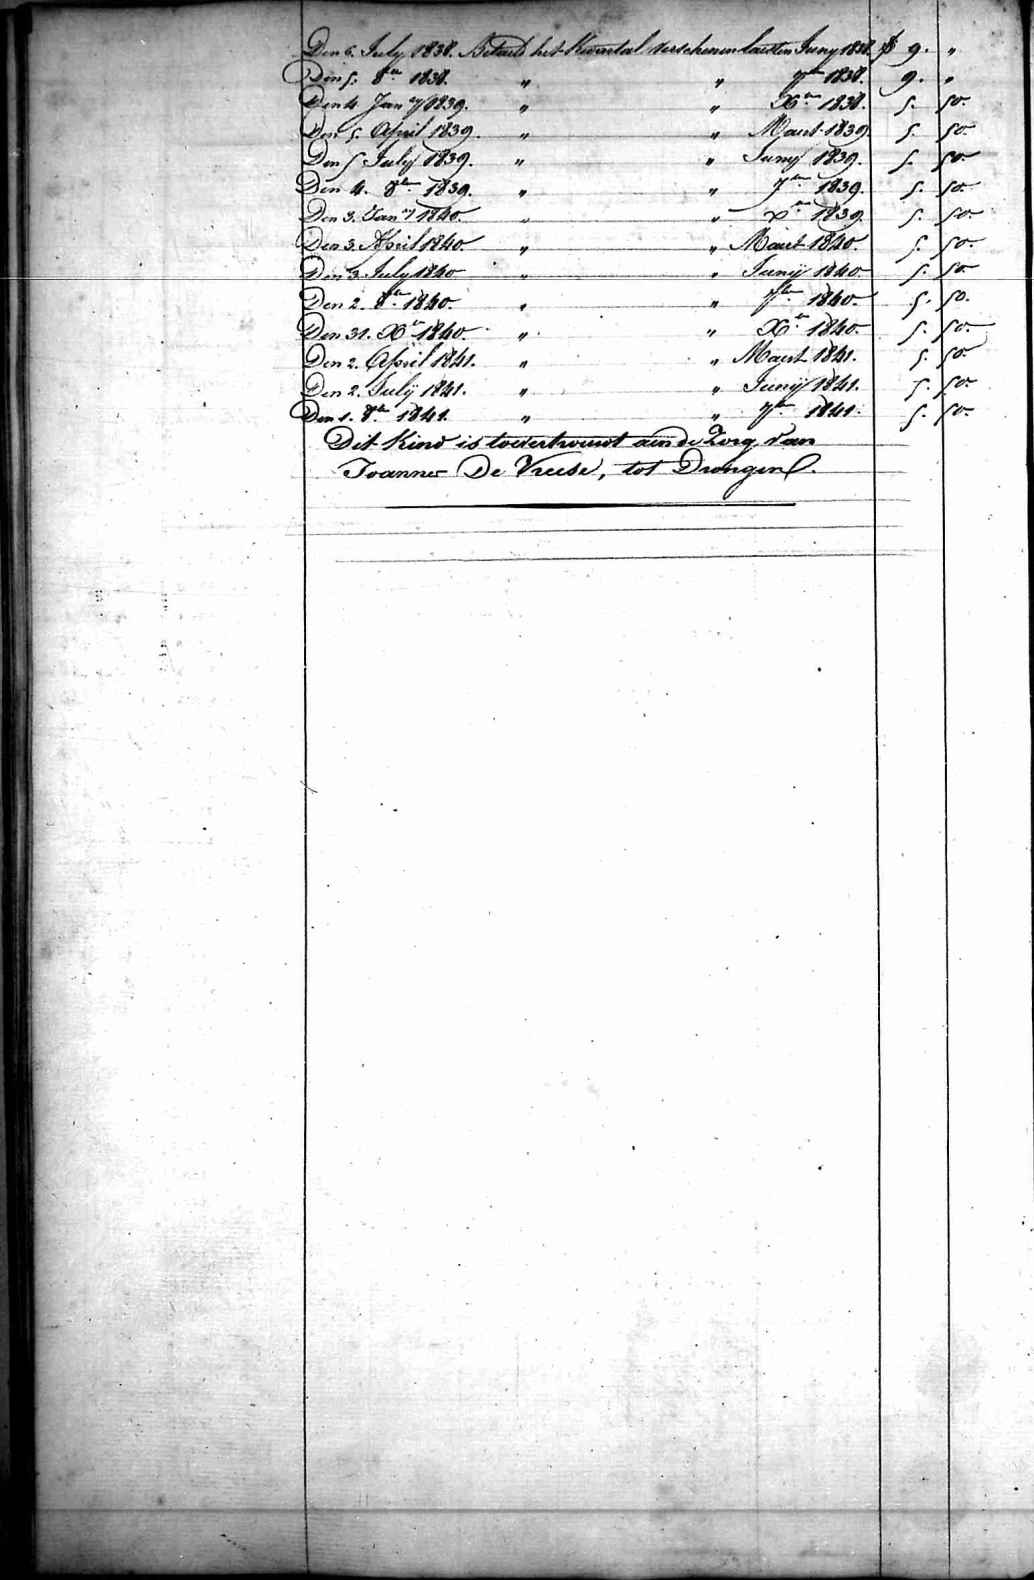 Den 6. July 1838. Betaald het Kwartal verschenen laesten Juny 1838. f 9. "
Den 5. 8ber 1838. " " 7ber 1838. 9. "
Den 4 Jany 1839. " " Xber 1838. 5. 50.
Den 5. April 1839. " " Maert 1839. 5. 50.
Den 5 July 1839. " " Junij 1839. 5. 50.
Den 4. 8ber 1839. " " 7ber 1839. 5. 50.
Den 3. Jany 1840. " " Xber 1839. 5. 50.
Den 3. April 1840 " " Maert 1840. 5. 50.
Den 3. July 1840 " " Junij 1840. 5. 50.
Den 2. 8ber 1840. " " 7ber 1840. 5. 50.
Den 31. Xber 1840. " " Xber 1840. 5. 50.
Den 2. April 1841. " " Maert 1841. 5. 50.
Den 2. Julij 1841. " " Junij 1841. 5. 50.
Den 1. 8ber 1841. " " 7ber 1841. 5. 50.
Dit Kind is toevertrouwt aen de Zorg van
Joannes De Vreese, tot Drongen.